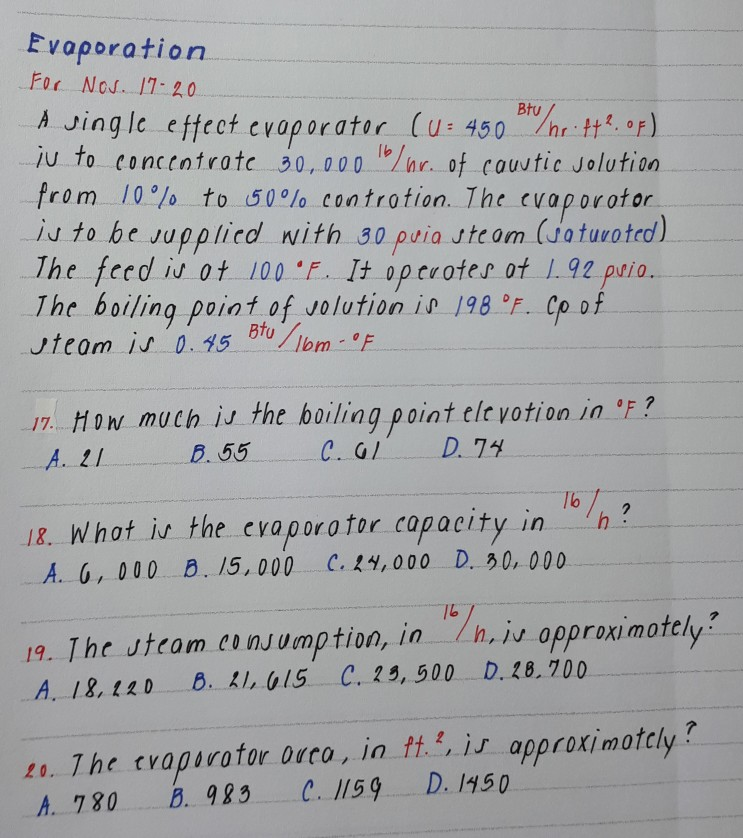 Evaporation
For Nos. 17-20
A single effect evaporator (U= 450 Btu/hr.ft².°F)
is to concentrate 30,000 lb/hr. of caustic solution
from 10% to 50% contration. The evaporator
is to be supplied with 30 psia steam (saturated)
The feed is at 100 °F. It operates at 1.92 psia.
The boiling point of solution is 198 °F. Cp of
steam is 0.45 Btu/lbm-°F
17. How much is the boiling point elevation in °F?
A. 21 B. 55 C. 61 D. 74
18. What is the evaporator capacity in lb/h?
A. 6,000 B. 15,000 C. 24,000 D. 30,000
19. The steam consumption, in lb/h, is approximately?
A. 18,220 B. 21,615 C. 23,500 D. 28,700
20. The evaporator area, in ft.², is approximately?
A. 780 B. 983 C. 1159 D. 1450